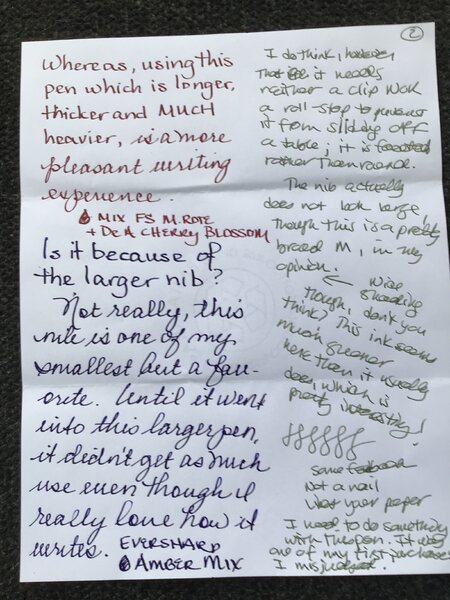 2
Whereas, using this
pen which is longer,
thicker and MUCH
heavier, is a more
pleasant writing
experience.
MIX FS M. ROTE
+ DeA CHERRY BLOSSOM
Is it because of
the larger nib?
Not really, this
nib is one of my
smallest but a fav-
orite. Until it went
into this larger pen,
it didn't get as much
use even though I
really love how it
writes. EVERSHARP
AMBER MIX
I do think, however,
that it needs
neither a clip NOR
a roll-stop to prevent
it from sliding OFF
a table; it is faceted
rather than round.
The nib actually
does not look large,
though this is a pretty
broad M, in my
opinion.
Nice shading
though, don't you
think? This ink seems
much greener
here than it usually
does, which is
pretty interesting!
some feedback
Not a nail
Like your paper
I need to do something
with this pen. It was
one of my first purchases
I misjudged.